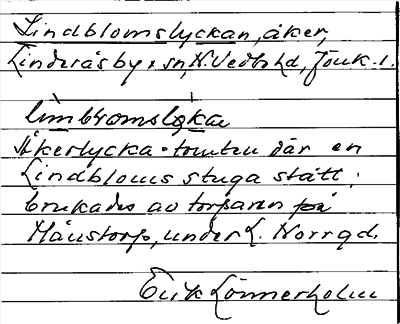 Lindblomslyckan, åker,
Linderås by o. sn, N. Vedbo hd, Jönk. l.
limbromsløka
Åkerlycka • tomten där en
Lindbloms stuga stått;
brukades av torparen på
Månstorp, under L. Norrgd.
Erik Lönnerholm